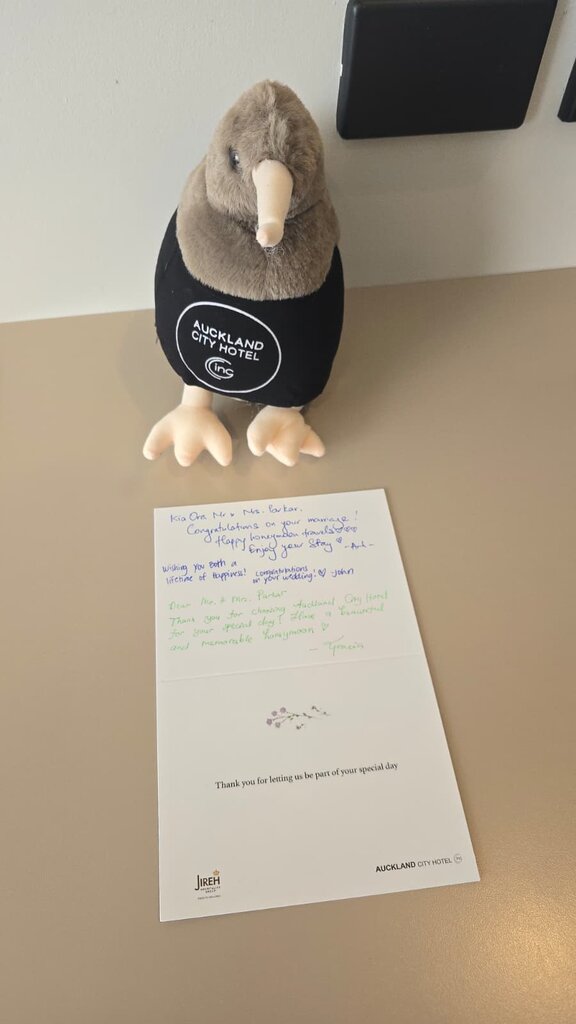 AUCKLAND
CITY HOTEL
inc
Kia Ora Mr & Mrs. Parkar.
Congratulations on your marriage!
Happy honeymoon travels
Enjoy your Stay
Wishing you Both a
lifetime of Happiness!
Congratulations
on your wedding! John
Dear Mr. & Mrs. Parkar
Thank you for choosing Auckland City Hotel
for your special day! Have a beautiful
and memorable honeymoon
Thank you for letting us be part of your special day
JIREH
HOSPITALITY
GROUP
AUCKLAND CITY HOTEL